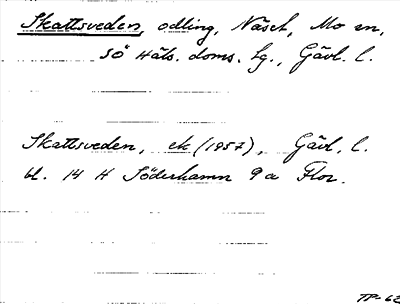 Skattsveden, odling, Näset, Mo sn,
SÖ Häls. doms. lg., Gävl. l.
Skattsveden, ek (1957), Gävl. l.
bl. 14 H Söderhamn 9 a Flor.
TP-62